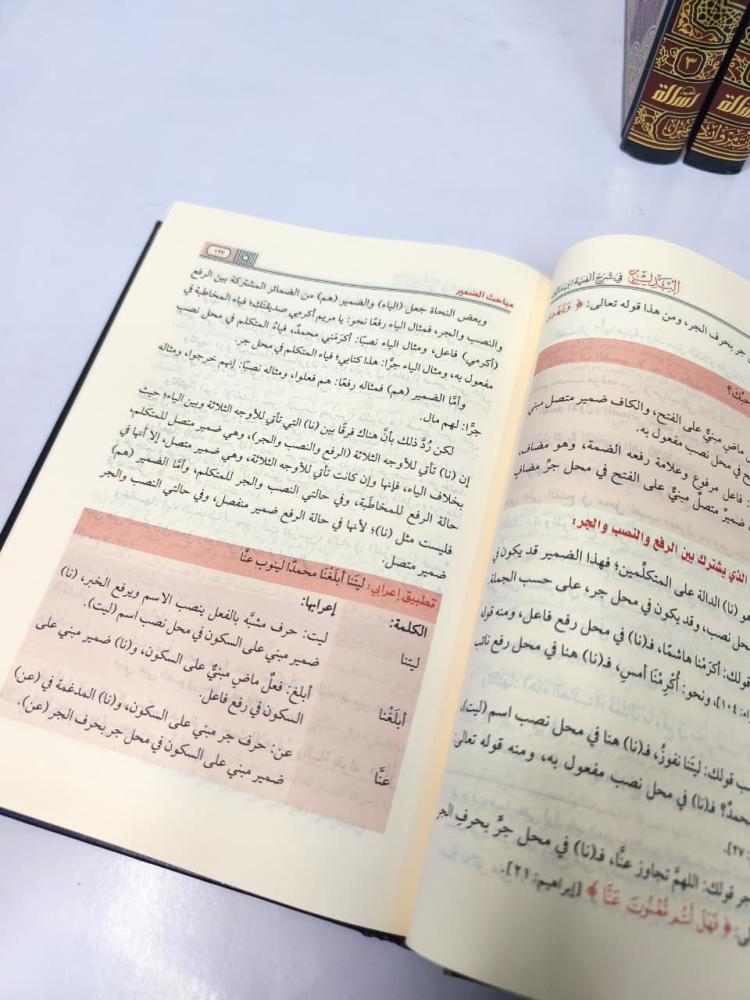 البديع في شرح ألفية ابن مالك
جر بحرف الجر، ومن هذا قوله تعالى: ﴿
ماضٍ مبنيٌّ على الفتح، والكاف ضمير متصل مبني
في محل نصب مفعول به.
فاعل مرفوع وعلامة رفعه الضمة، وهو مضاف،
ضميرٌ متصلٌ مبنيٌّ على الفتح في محل جرٍّ مضاف
الذي يشترك بين الرفع والنصب والجر:
هو (نا) الدالة على المتكلِّمين؛ فهذا الضمير قد يكون في
محل نصب، وقد يكون في محل جر، على حسب الجملة
قولك: أكرَمْنا هاشمًا، فـ(نا) في محل رفع فاعل، ومنه قوله
١٠٤]، ونحو: أُكْرِمْنا أمسِ، فـ(نا) هنا في محل رفع نائب
قولك: ليتَنا نفوزُ، فـ(نا) هنا في محل نصب اسم (ليت)،
محمدٌ؟ فـ(نا) في محل نصب مفعول به، ومنه قوله تعالى:
٢٧].
جر قولك: اللهمَّ تجاوز عنَّا، فـ(نا) في محل جرٍّ بحرفِ الجر
﴿ فَهَلْ أَنتُم مُّغْنُونَ عَنَّا ﴾ [إبراهيم: ٢١].
مباحث الضمير
١٣٧
وبعض النحاة جعل (الياء) والضمير (هم) من الضمائر المشتركة بين الرفع
والنصب والجر، فمثال الياء رفعًا نحو: يا مريم أكرمي صديقتك؛ فياء المخاطبة في
(أكرمي) فاعل، ومثال الياء نصبًا: أكرَمَني محمدٌ، فياءُ المتكلم في محل نصب
مفعول به، ومثال الياء جرًّا: هذا كتابي؛ فياء المتكلم في محل جر.
وأمَّا الضمير (هم) فمثاله رفعًا: هم فعلوا، ومثاله نصبًا: إنهم خرجوا، ومثاله
جرًّا: لهم مال.
لكن رُدَّ ذلك بأنَّ هناك فرقًا بين (نا) التي تأتي للأوجه الثلاثة وبين الياء؛ حيث
إن (نا) تأتي للأوجه الثلاثة (الرفع والنصب والجر)، وهي ضمير متصل للمتكلم،
بخلاف الياء، فإنها وإن كانت تأتي للأوجه الثلاثة، وهي ضمير متصل، إلا أنها في
حالة الرفع للمخاطَبة، وفي حالتي النصب والجر للمتكلم، وأمَّا الضمير (هم)
فليست مثل (نا)؛ لأنها في حالة الرفع ضمير منفصل، وفي حالتي النصب والجر
ضمير متصل.
تطبيق إعرابي: ليتَنا أبلَغْنَا محمدًا لينوب عنَّا
الكلمة: إعرابها:
ليتنا ليت: حرف مشبَّه بالفعل ينصب الاسم ويرفع الخبر، (نا)
ضمير مبني على السكون في محل نصب اسم (ليت).
أبلَغْنَا أبلغ: فعلٌ ماضٍ مبنيٌّ على السكون، و(نا) ضمير مبني على
السكون في رفع فاعل.
عنَّا عن: حرف جر مبني على السكون، و(نا) المدغمة في (عن)
ضمير مبني على السكون في محل جر بحرف الجر (عن).
٣